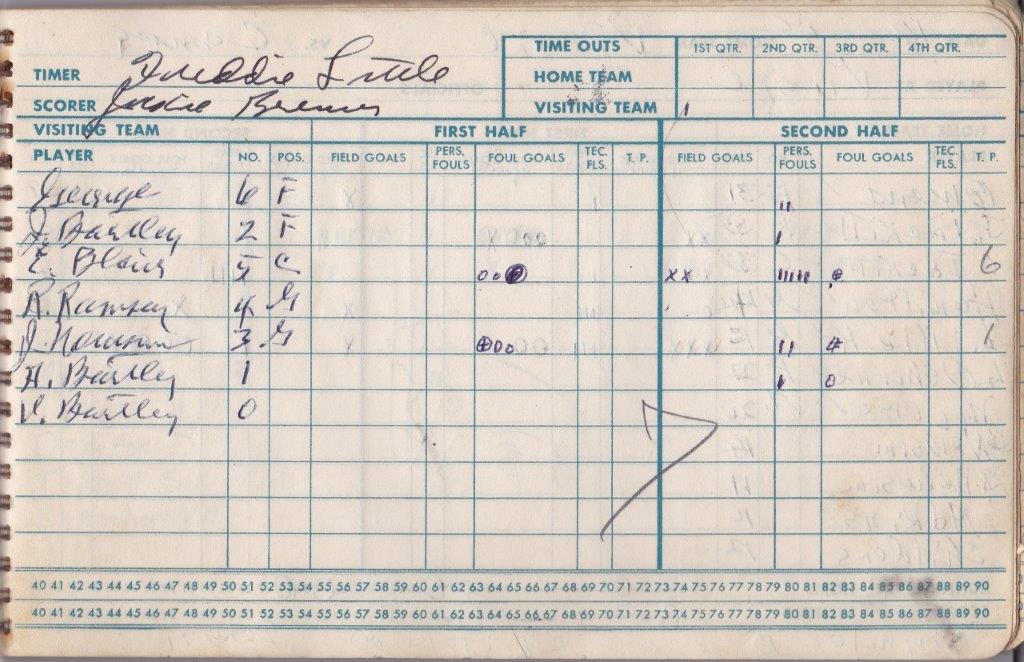 TIME OUTS 1ST QTR. 2ND QTR. 3RD QTR. 4TH QTR.
TIMER Freddie Little
HOME TEAM
SCORER
VISITING TEAM 1
VISITING TEAM FIRST HALF SECOND HALF
PLAYER NO. POS. FIELD GOALS PERS. FOULS FOUL GOALS TEC. FLS. T. P. FIELD GOALS PERS. FOULS FOUL GOALS TEC. FLS. T. P.
George 6 F 11
J. Bartley 2 F 1
E. Blair 5 C 00 XX 11111 6
R. Ramsey 4 G
J. 3 G 00 11
A. Bartley 1 1 0
V. Bartley 0
40 41 42 43 44 45 46 47 48 49 50 51 52 53 54 55 56 57 58 59 60 61 62 63 64 65 66 67 68 69 70 71 72 73 74 75 76 77 78 79 80 81 82 83 84 85 86 87 88 89 90
40 41 42 43 44 45 46 47 48 49 50 51 52 53 54 55 56 57 58 59 60 61 62 63 64 65 66 67 68 69 70 71 72 73 74 75 76 77 78 79 80 81 82 83 84 85 86 87 88 89 90